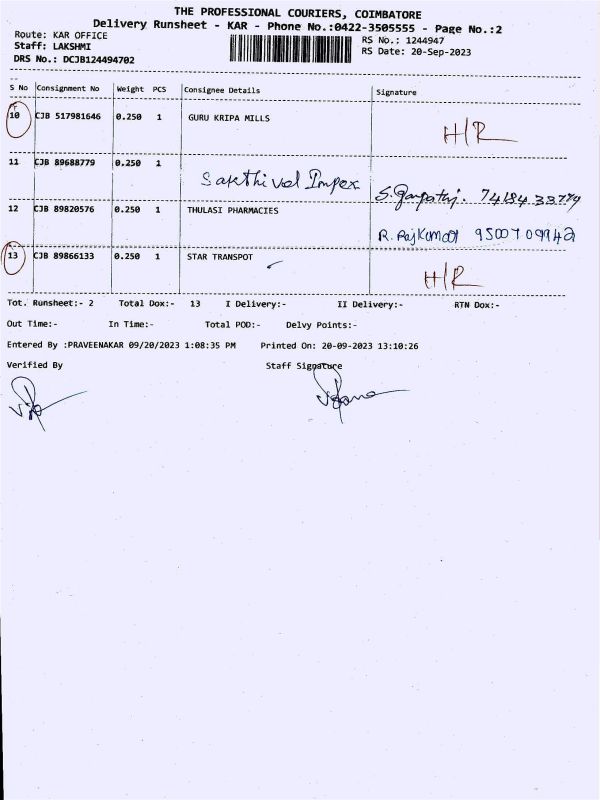 THE PROFESSIONAL COURIERS, COIMBATORE
Delivery Runsheet - KAR - Phone No.:0422-3505555 - Page No.:2
Route: KAR OFFICE
RS No.: 1244947
Staff: LAKSHMI
RS Date: 20-Sep-2023
DRS No.: DCJB124494702
S No Consignment No Weight PCS Consignee Details Signature
10 CJB 517981646 0.250 1 GURU KRIPA MILLS H/R
11 CJB 89688779 0.250 1 Sakthi vel Impex S. 
12 CJB 89820576 0.250 1 THULASI PHARMACIES R. Rajkumar 9500709942
13 CJB 89866133 0.250 1 STAR TRANSPOT H/R
Tot. Runsheet:- 2 Total Dox:- 13 I Delivery:- II Delivery:- RTN Dox:-
Out Time:- In Time:- Total POD:- Delvy Points:-
Entered By :PRAVEENAKAR 09/20/2023 1:08:35 PM Printed On: 20-09-2023 13:10:26
Verified By Staff Signature